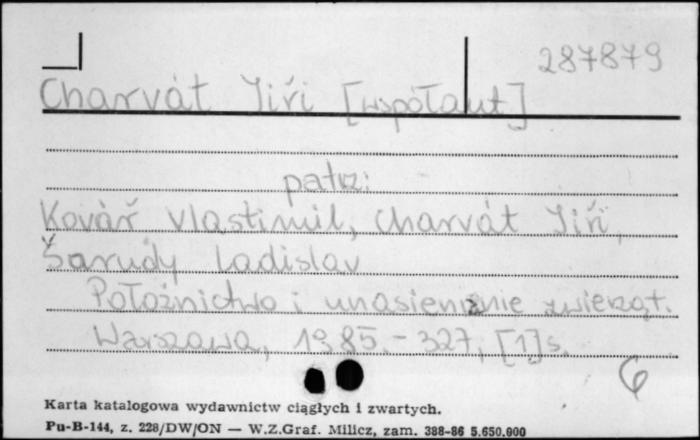 287879
Charvát Jiří [współaut]
patrz:
Kovář Vlastimil, Charvát Jiří,
Šarudy Ladislav
Położnictwo i unasienianie zwierząt.
Warszawa, 1985. - 327, [1] s.
6
Karta katalogowa wydawnictw ciągłych i zwartych.
Pu-B-144, z. 228/DW/ON — W.Z.Graf. Milicz, zam. 388-86 5.650.000